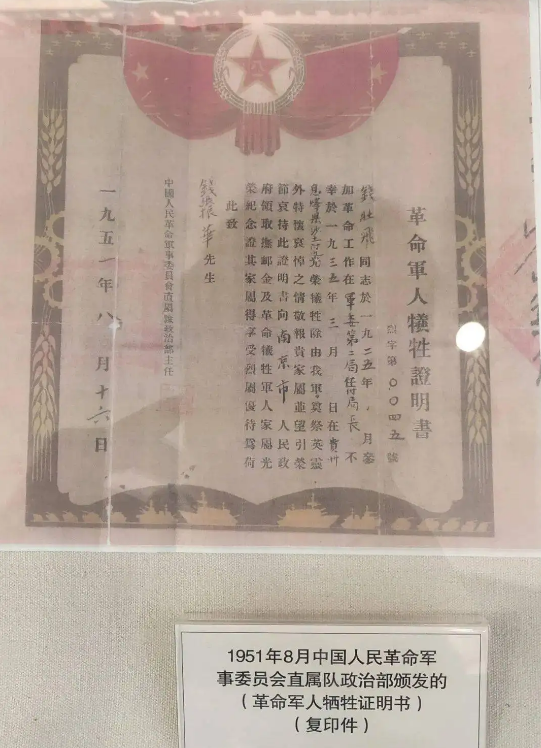 革命軍人犧牲證明書
字第〇〇四五號
錢壯飛同志於一九二五年 月參
加革命工作在軍委第二局任付局長不
幸於一九三五年三月 日在貴州
光榮犧牲除由我軍奠祭英靈
外特懷哀悼之情敬報貴家屬並望引榮
節哀持此證明書向南京市人民政
府領取撫卹金及革命犧牲軍人家屬光
榮紀念證其家屬得享受烈屬優待為荷
此致
錢 振華先生
中國人民革命軍事委員會直屬隊政治部主任
一九五一年八月十六日
1951年8月中国人民革命军
事委员会直属队政治部颁发的
（革命军人牺牲证明书）
（复印件）